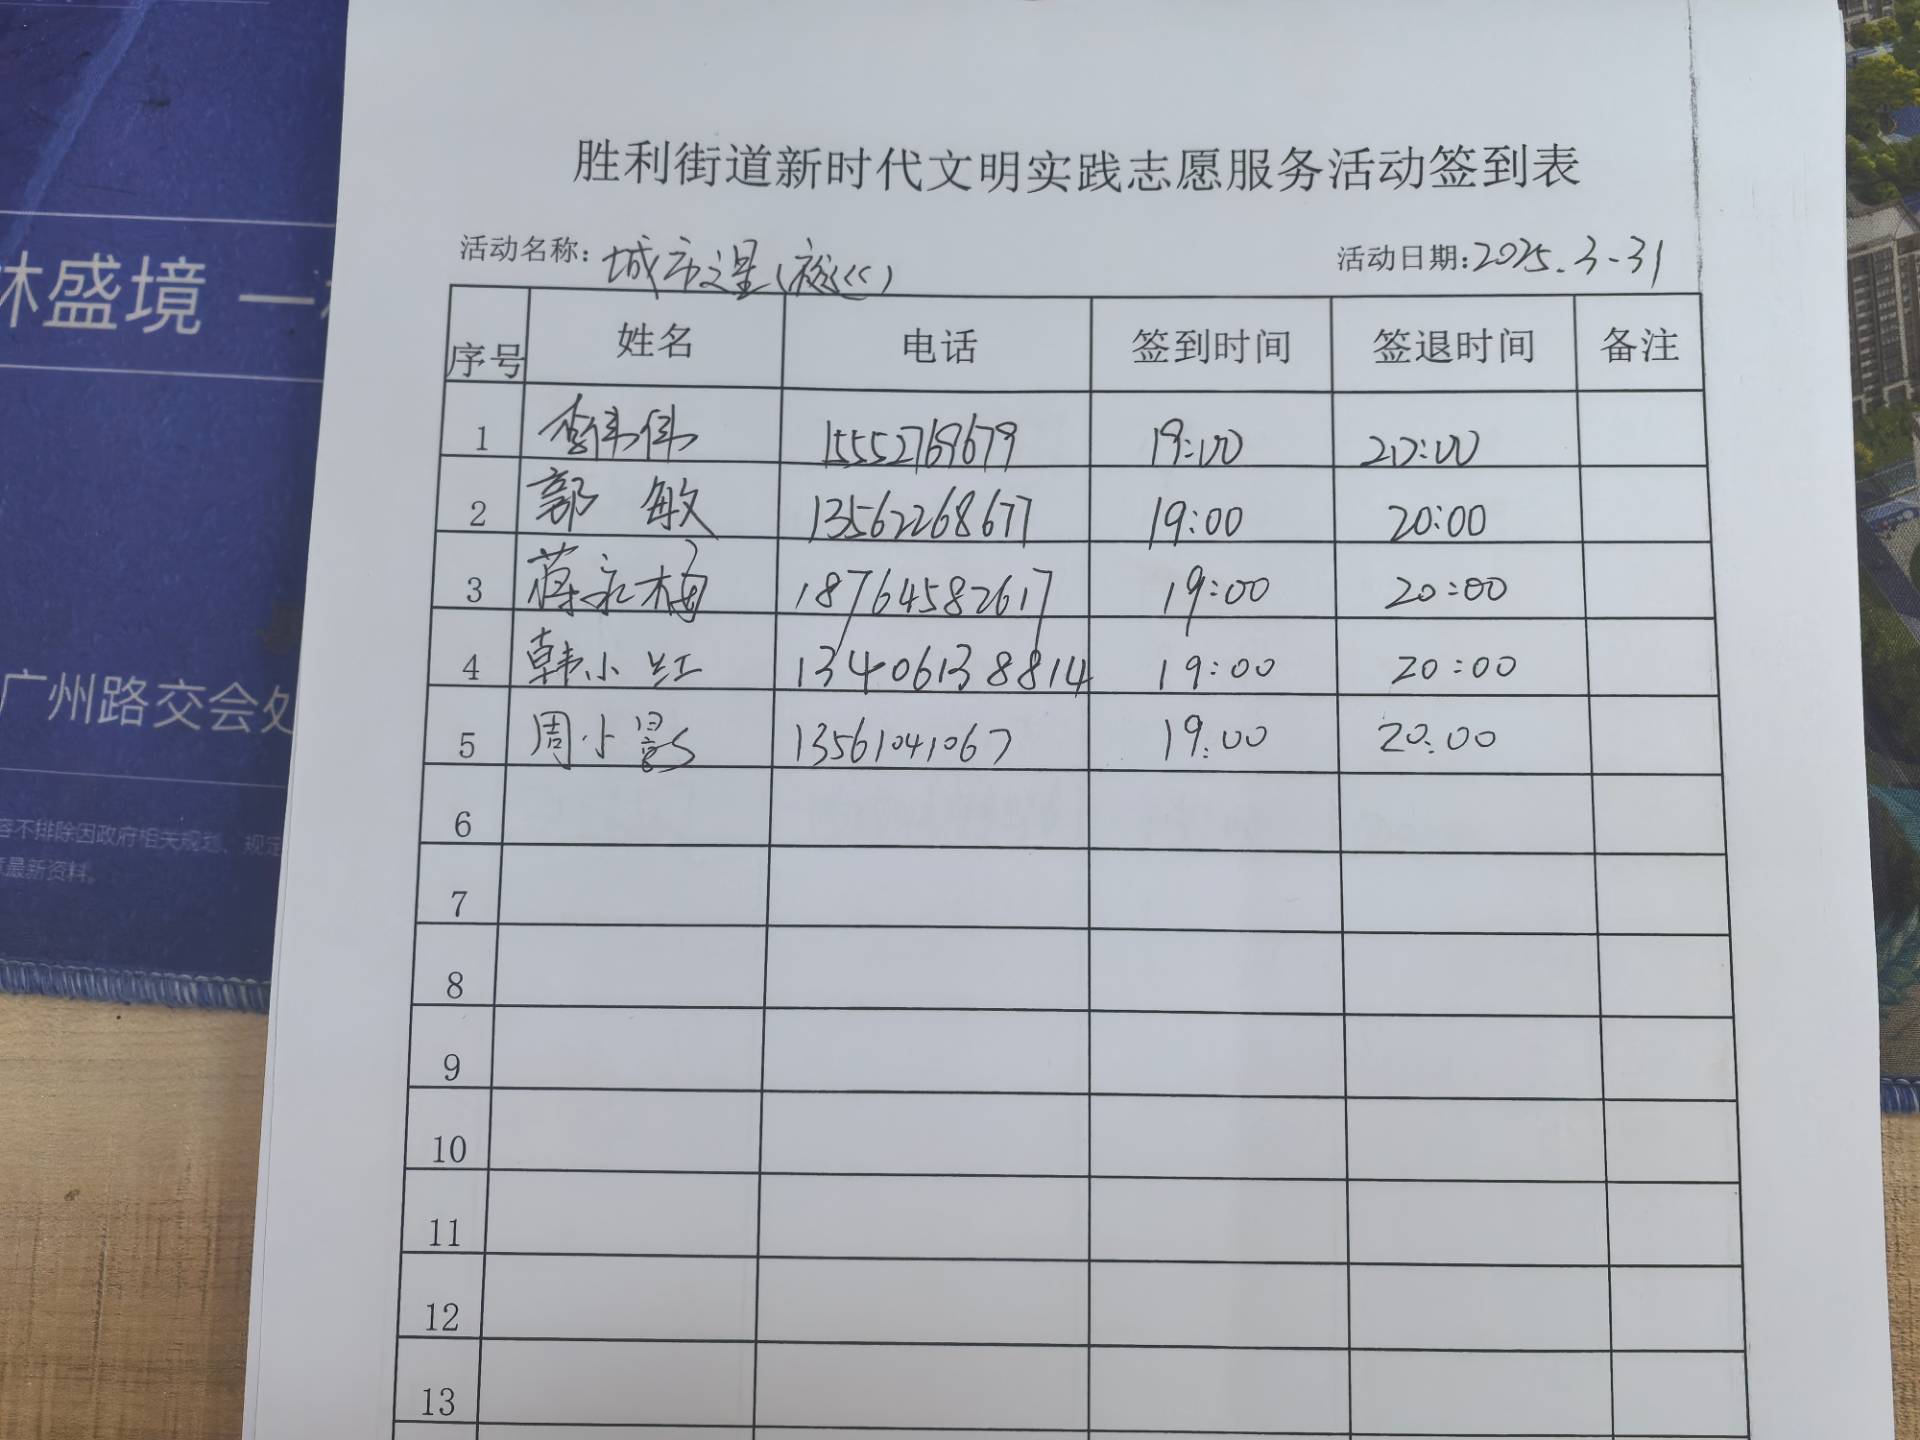 胜利街道新时代文明实践志愿服务活动签到表
活动名称: 城市之星(夜巡) 活动日期: 2025.3-31
序号 姓名 电话 签到时间 签退时间 备注
1 李伟伟 15552769679 19:00 20:00
2 郭敏 13562268677 19:00 20:00
3 蒋永梅 18764582617 19:00 20:00
4 韩小红 13406138814 19:00 20:00
5 周小 13561041067 19:00 20:00
6
7
8
9
10
11
12
13
林盛境 一
广州路交会处
容不排除因政府相关规划、规定
最新资料。